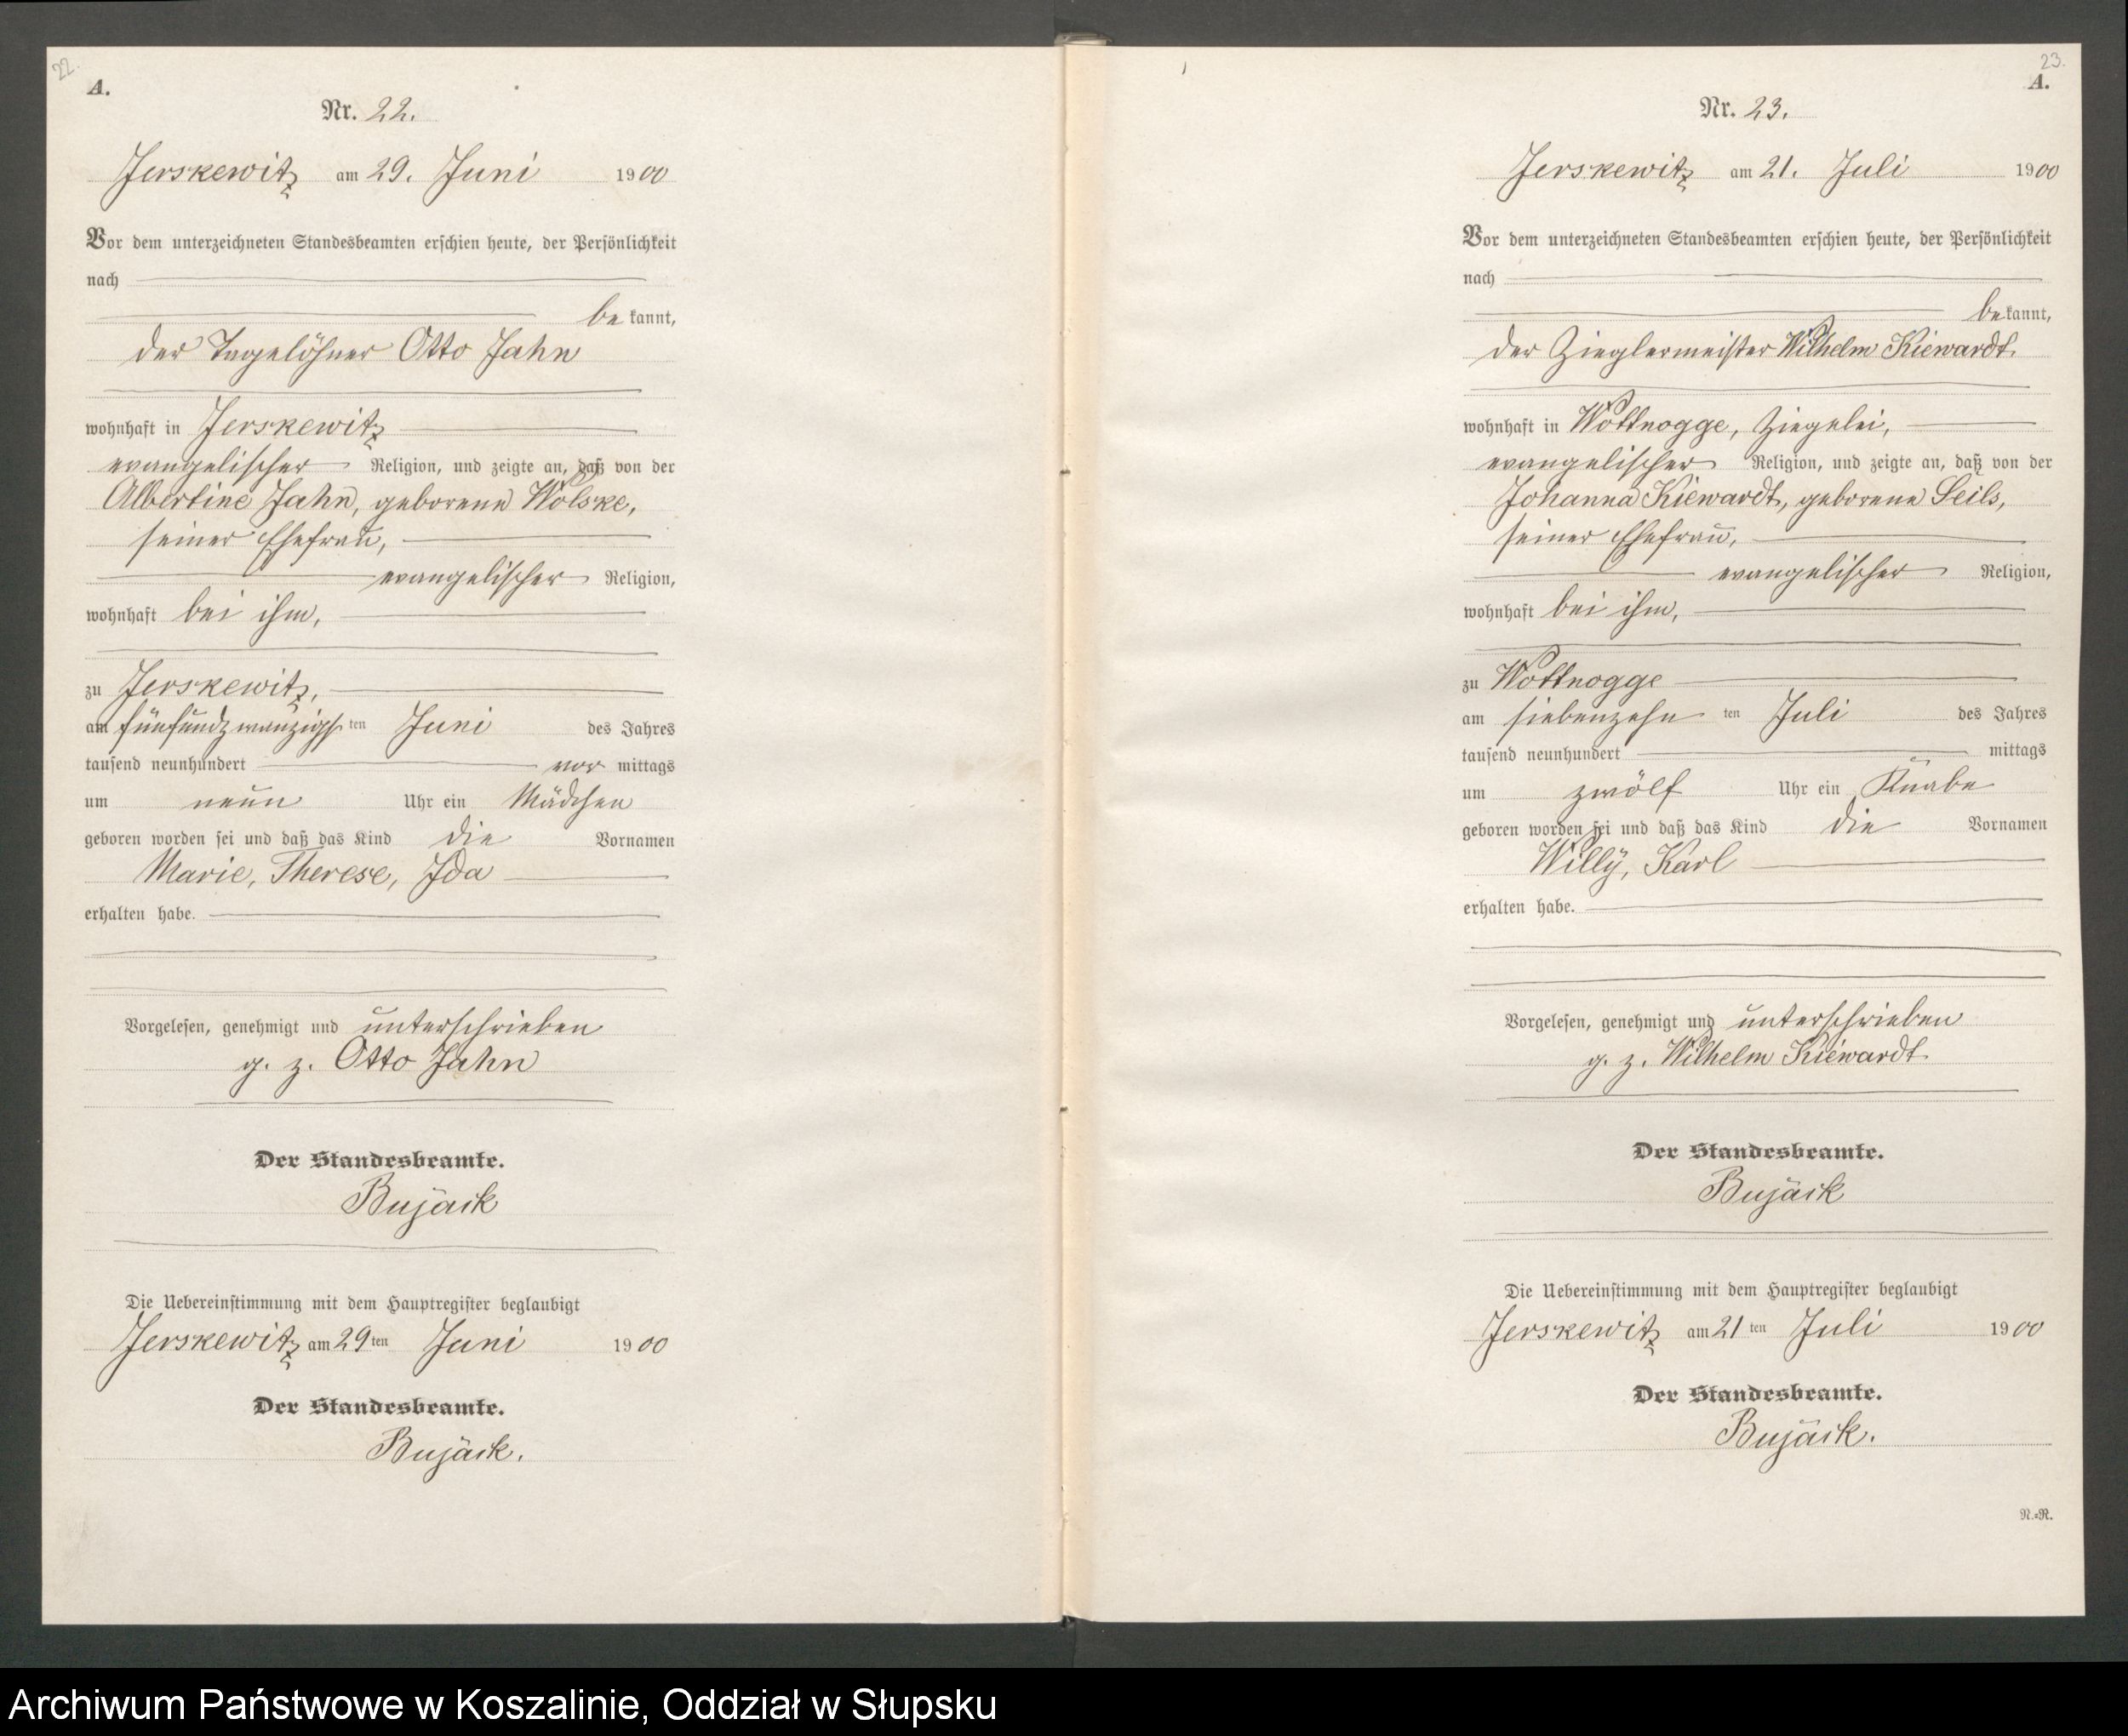 22.
A.
Nr. 22.
Jerskewitz am 29. Juni 1900
Vor dem unterzeichneten Standesbeamten erschien heute, der Persönlichkeit
nach
be kannt,
der Tagelöhner Otto Jahn
wohnhaft in Jerskewitz
evangelischer Religion, und zeigte an, daß von der
Albertine Jahn, geborene Wolske,
seiner Ehefrau,
evangelischer Religion,
wohnhaft bei ihm,
zu Jerskewitz,
am fünfundzwanzigsten Juni des Jahres
tausend neunhundert vor mittags
um neun Uhr ein Mädchen
geboren worden sei und daß das Kind die Vornamen
Marie, Therese, Ida
erhalten habe.
Vorgelesen, genehmigt und unterschrieben
g. z. Otto Jahn
Der Standesbeamte.
Bujack
Die Uebereinstimmung mit dem Hauptregister beglaubigt
Jerskewitz am 29ten Juni 1900
Der Standesbeamte.
Bujack.
23.
A.
Nr. 23.
Jerskewitz am 21. Juli 1900
Vor dem unterzeichneten Standesbeamten erschien heute, der Persönlichkeit
nach
be kannt,
der Zieglermeister Wilhelm Kiewardt
wohnhaft in Wottnogge, Ziegelei,
evangelischer Religion, und zeigte an, daß von der
Johanna Kiewardt, geborene Seils,
seiner Ehefrau,
evangelischer Religion,
wohnhaft bei ihm,
zu Wottnogge
am siebenzehn ten Juli des Jahres
tausend neunhundert mittags
um zwölf Uhr ein Knabe
geboren worden sei und daß das Kind die Vornamen
Willy, Karl
erhalten habe.
Vorgelesen, genehmigt und unterschrieben
g. z. Wilhelm Kiewardt
Der Standesbeamte.
Bujack
Die Uebereinstimmung mit dem Hauptregister beglaubigt
Jerskewitz am 21 ten Juli 1900
Der Standesbeamte.
Bujack.
N.-R.
Archiwum Państwowe w Koszalinie, Oddział w Słupsku